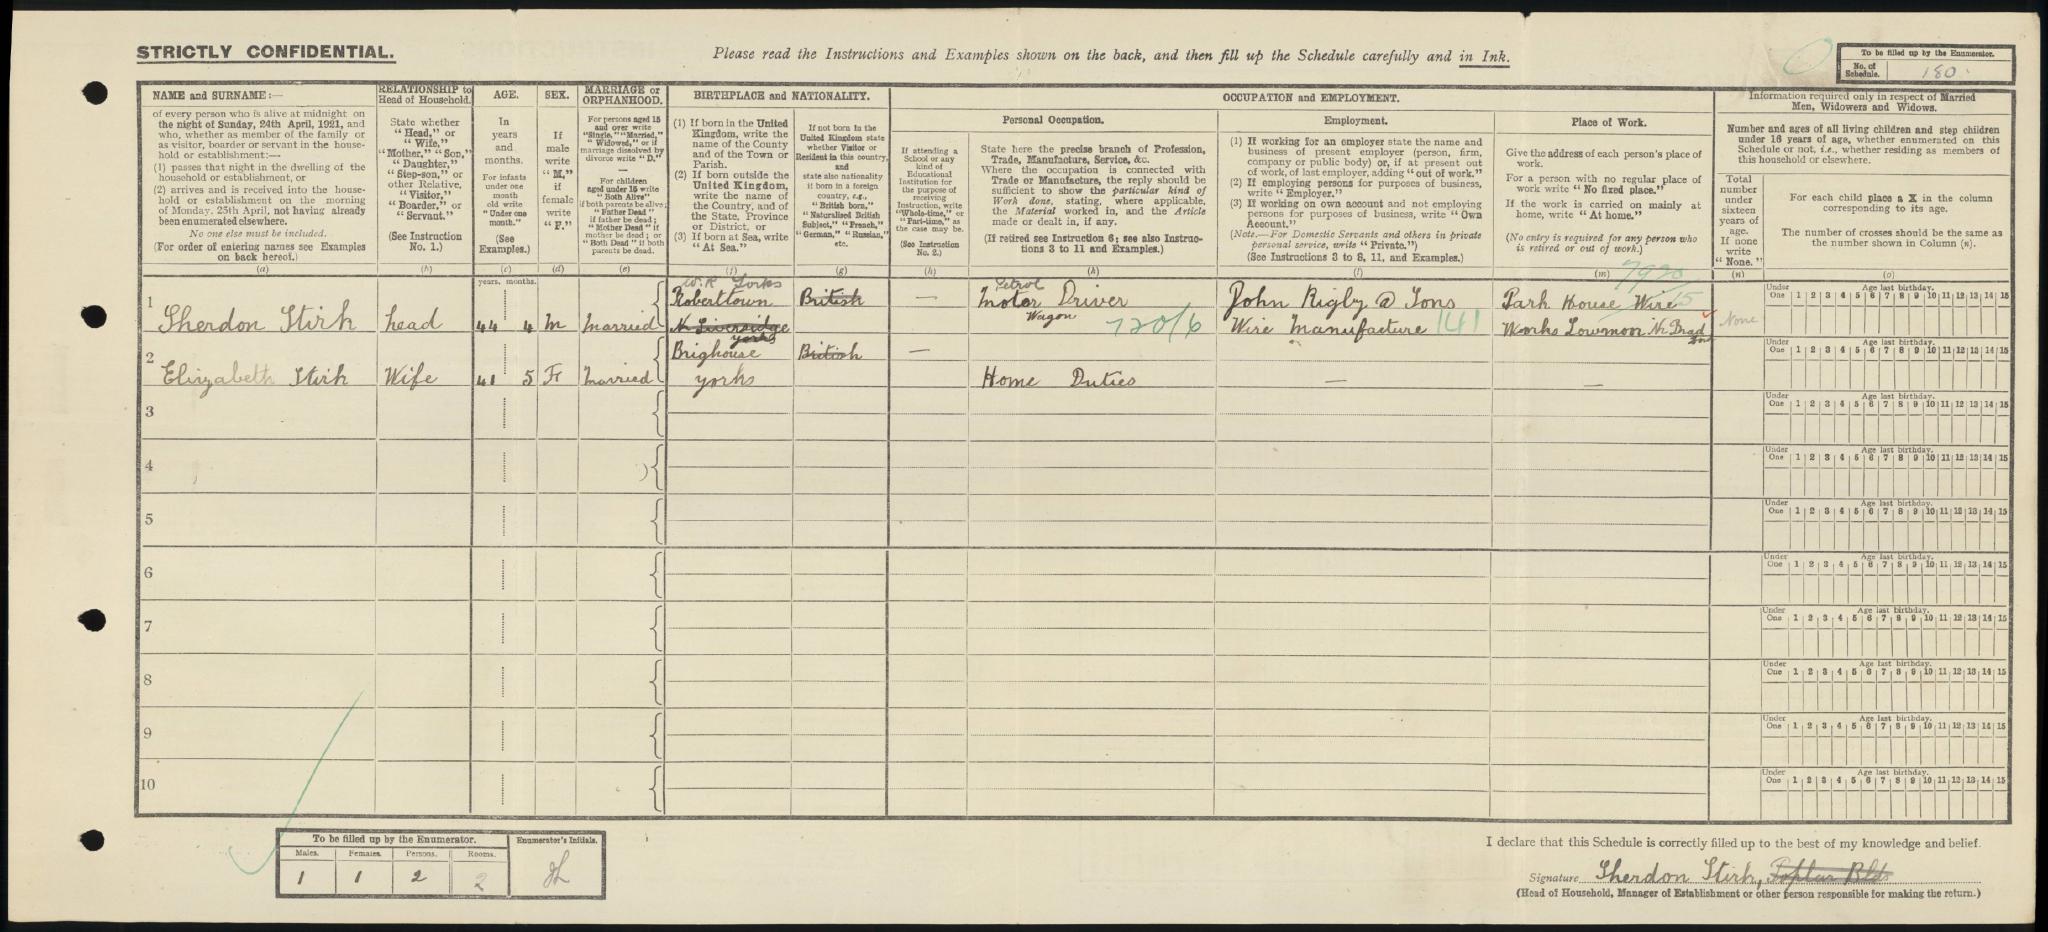 STRICTLY CONFIDENTIAL.
Please read the Instructions and Examples shown on the back, and then fill up the Schedule carefully and in Ink.
To be filled up by the Enumerator.
No. of Schedule. 180.
NAME and SURNAME:—
of every person who is alive at midnight on
the night of Sunday, 24th April, 1921, and
who, whether as member of the family or
as visitor, boarder or servant in the house-
hold or establishment:—
(1) passes that night in the dwelling of the
household or establishment, or
(2) arrives and is received into the house-
hold or establishment on the morning
of Monday, 25th April, not having already
been enumerated elsewhere.
No one else must be included.
(For order of entering names see Examples
on back hereof.)
(a)
RELATIONSHIP to
Head of Household.
State whether
"Head," or
"Wife,"
"Mother," "Son,"
"Daughter,"
"Step-son," or
other Relative,
"Visitor,"
"Boarder," or
"Servant."
(See Instruction
No. 1.)
(b)
AGE.
In
years
and
months.
For infants
under one
month
old write
"Under one
month."
(See
Examples.)
(c)
SEX.
If
male
write
"M,"
if
female
write
"F."
(d)
MARRIAGE or
ORPHANHOOD.
For persons aged 15
and over write
"Single," "Married,"
"Widowed," or if
marriage dissolved by
divorce write "D."
—
For children
aged under 15 write
"Both Alive"
if both parents be alive;
"Father Dead"
if father be dead;
"Mother Dead" if
mother be dead; or
"Both Dead" if both
parents be dead.
(e)
BIRTHPLACE and NATIONALITY.
(1) If born in the United
Kingdom, write the
name of the County
and of the Town or
Parish.
(2) If born outside the
United Kingdom,
write the name of
the Country, and of
the State, Province
or District, or
(3) If born at Sea, write
"At Sea."
(f)
If not born in the
United Kingdom state
whether Visitor or
Resident in this country,
and
state also nationality
if born in a foreign
country, e.g.,
"British born,"
"Naturalised British
Subject," "French,"
"German," "Russian,"
etc.
(g)
OCCUPATION and EMPLOYMENT.
If attending a
School or any
kind of
Educational
Institution for
the purpose of
receiving
Instruction, write
"Whole-time," or
"Part-time," as
the case may be.
(See Instruction
No. 2.)
(h)
Personal Occupation.
State here the precise branch of Profession,
Trade, Manufacture, Service, &c.
Where the occupation is connected with
Trade or Manufacture, the reply should be
sufficient to show the particular kind of
Work done, stating, where applicable,
the Material worked in, and the Article
made or dealt in, if any.
(If retired see Instruction 6; see also Instruc-
tions 3 to 11 and Examples.)
(k)
Employment.
(1) If working for an employer state the name and
business of present employer (person, firm,
company or public body) or, if at present out
of work, of last employer, adding "out of work."
(2) If employing persons for purposes of business,
write "Employer."
(3) If working on own account and not employing
persons for purposes of business, write "Own
Account."
(Note.—For Domestic Servants and others in private
personal service, write "Private.")
(See Instructions 3 to 8, 11, and Examples.)
(l)
Place of Work.
Give the address of each person's place of
work.
For a person with no regular place of
work write "No fixed place."
If the work is carried on mainly at
home, write "At home."
(No entry is required for any person who
is retired or out of work.)
(m)
Information required only in respect of Married
Men, Widowers and Widows.
Number and ages of all living children and step children
under 16 years of age, whether enumerated on this
Schedule or not, i.e., whether residing as members of
this household or elsewhere.
Total
number
under
sixteen
years of
age.
If none
write
"None."
(n)
For each child place a X in the column
corresponding to its age.
The number of crosses should be the same as
the number shown in Column (n).
(o)
years. months.
1 Sherdon Stirk head 44 4 M Married
W.R Yorks
Roberttown
Nr Liversidge
yorks
British —
Petrol
Motor Driver
Wagon 720/6
John Rigby @ Sons
Wire Manufacture 141
Park House Wire
Works Lowmoor Nr Brad
None
2 Elizabeth Stirk Wife 41 5 F Married
Brighouse
yorks
British —
Home Duties — —
3
4
5
6
7
8
9
10
Under One Age last birthday. 1 2 3 4 5 6 7 8 9 10 11 12 13 14 15
Under One Age last birthday. 1 2 3 4 5 6 7 8 9 10 11 12 13 14 15
Under One Age last birthday. 1 2 3 4 5 6 7 8 9 10 11 12 13 14 15
Under One Age last birthday. 1 2 3 4 5 6 7 8 9 10 11 12 13 14 15
Under One Age last birthday. 1 2 3 4 5 6 7 8 9 10 11 12 13 14 15
Under One Age last birthday. 1 2 3 4 5 6 7 8 9 10 11 12 13 14 15
Under One Age last birthday. 1 2 3 4 5 6 7 8 9 10 11 12 13 14 15
Under One Age last birthday. 1 2 3 4 5 6 7 8 9 10 11 12 13 14 15
Under One Age last birthday. 1 2 3 4 5 6 7 8 9 10 11 12 13 14 15
Under One Age last birthday. 1 2 3 4 5 6 7 8 9 10 11 12 13 14 15
To be filled up by the Enumerator.
Males. Females. Persons. Rooms.
1 1 2 2
Enumerator's Initials.
I declare that this Schedule is correctly filled up to the best of my knowledge and belief.
Signature Sherdon Stirk, Poplar Blds
(Head of Household, Manager of Establishment or other person responsible for making the return.)